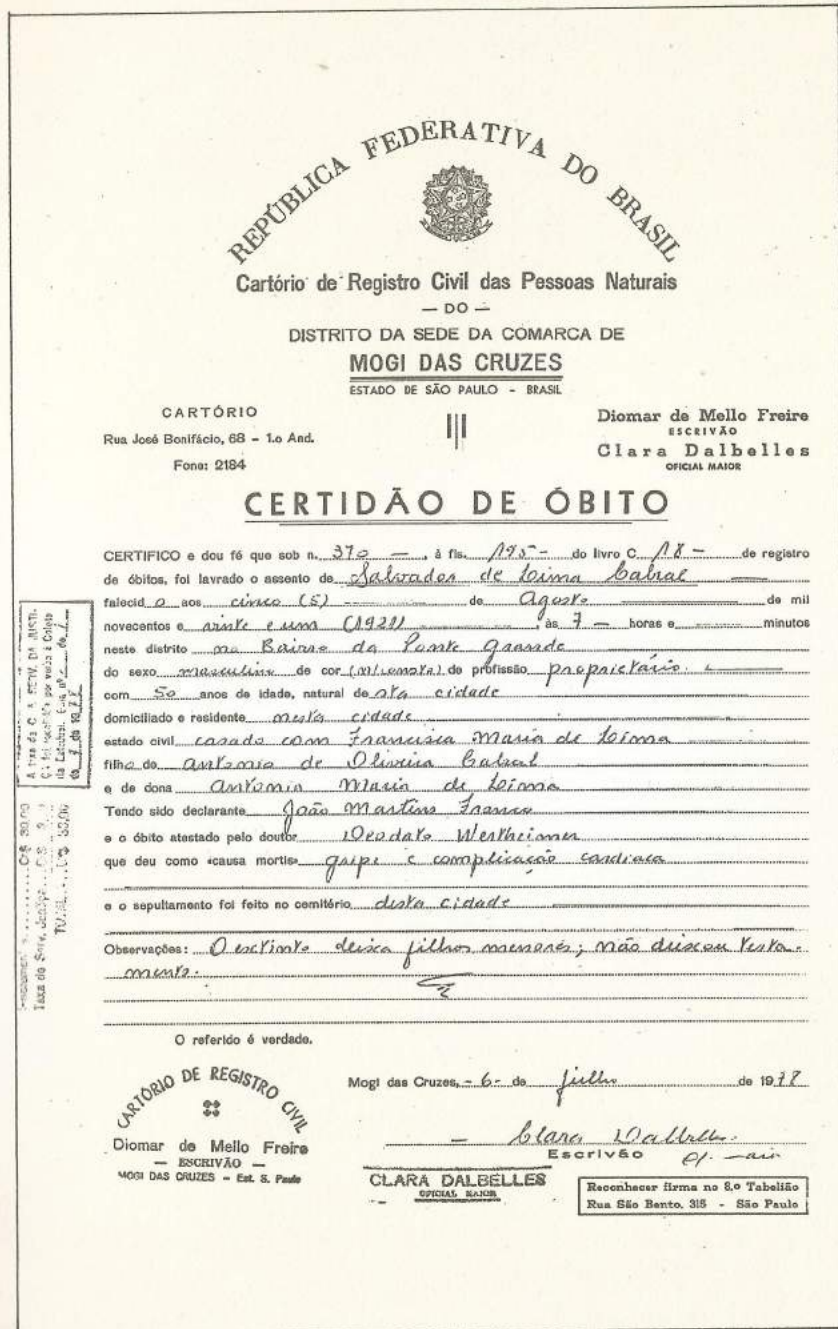 REPÚBLICA FEDERATIVA DO BRASIL
Cartório de Registro Civil das Pessoas Naturais
— DO —
DISTRITO DA SEDE DA COMARCA DE
MOGI DAS CRUZES
ESTADO DE SÃO PAULO - BRASIL
CARTÓRIO
Rua José Bonifácio, 68 - 1.o And.
Fone: 2184
Diomar de Mello Freire
ESCRIVÃO
Clara Dalbelles
OFICIAL MAIOR
CERTIDÃO DE ÓBITO
CERTIFICO e dou fé que sob n. 370 —, à fls. 195 - do livro C 18 - de registro
de óbitos, foi lavrado o assento de Salvador de Lima Cabral —
falecido aos cinco (5) — de Agosto — de mil
novecentos e vinte e um (1921) —, às 7 — horas e — minutos
neste distrito no Bairro da Ponte Grande
do sexo masculino de cor (n/consta) de profissão proprietário. —
com 50 anos de idade, natural desta cidade
domiciliado e residente nesta cidade
estado civil casado com Francisca Maria de Lima
filho de Antonio de Oliveira Cabral
e de dona Antonia Maria de Lima
Tendo sido declarante João Martins Franco
e o óbito atestado pelo doutor Deodato Wertheimer
que deu como «causa mortis» gripe e complicação cardiaca
e o sepultamento foi feito no cemitério desta cidade —
Observações: O extinto deixa filhos menores; não deixou testa-
mento.
O referido é verdade.
Mogi das Cruzes, - 6 - de julho de 1978
CARTÓRIO DE REGISTRO CIVIL
Diomar de Mello Freire
— ESCRIVÃO —
MOGI DAS CRUZES - Est. S. Paulo
Clara Dalbelles.
Escrivão
CLARA DALBELLES
OFICIAL MAIOR
Reconhecer firma no 8.o Tabelião
Rua São Bento, 315 - São Paulo
A taxa da C. A. SERV. DA JUSTI-